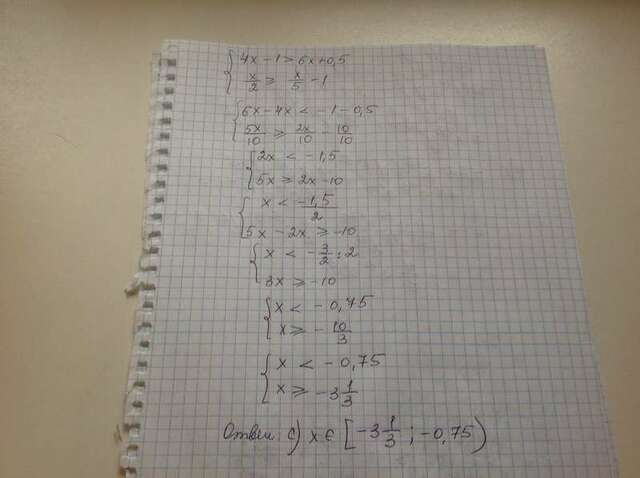 4x - 1 > 6x + 0,5
x/2 ≥ x/5 - 1
6x - 4x < -1 - 0,5
5x/10 ≥ 2x/10 - 10/10
2x < -1,5
5x ≥ 2x - 10
x < -1,5/2
5x - 2x ≥ -10
x < -3/2 : 2
3x ≥ -10
x < -0,75
x ≥ -10/3
x < -0,75
x ≥ -3 1/3
Ответ: c) x ∈ [-3 1/3 ; -0,75)